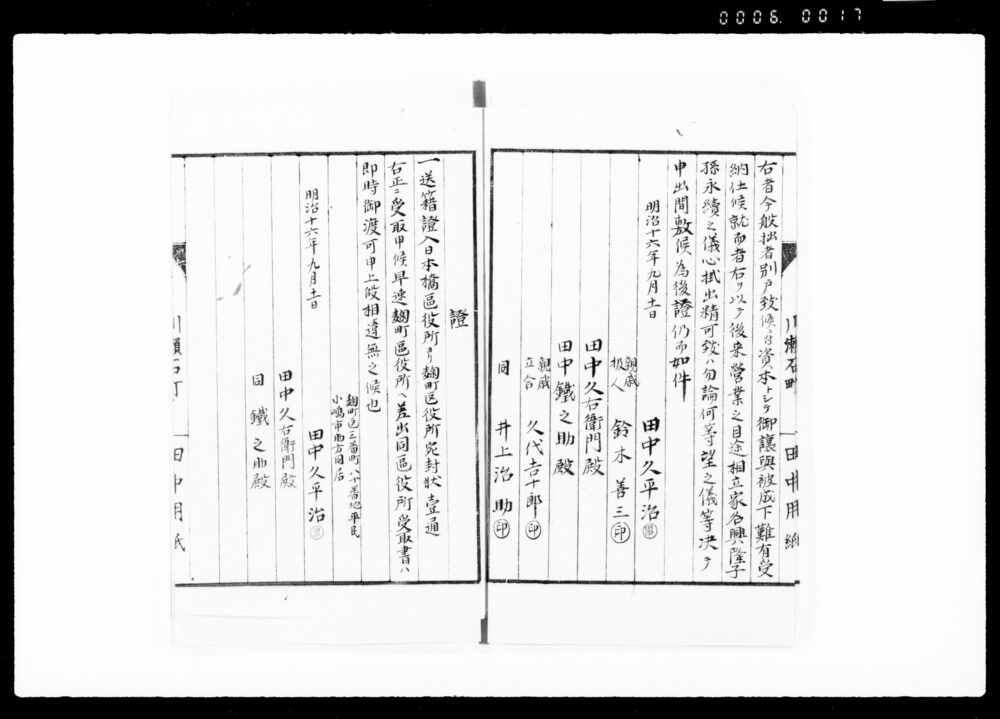 0006. 0017
右者今般拙者別戸致候ニ付資本トシテ御譲與被成下難有受
納仕候就而者右ヲ以テ後来営業之目途相立家名興隆子
孫永續之儀心掛出精可致ハ勿論何等望之儀等决テ
申出間敷候為後證仍而如件
明治十六年九月十一日
田中久平治
親戚
扱人 鈴木善三 印
田中久右衛門殿
田中鐵之助殿
親戚
立合 久代吉十郎 印
同 井上治助 印
田中用紙
證
一送籍證入日本橋區役所ヨリ麹町區役所宛封状壹通
右正ニ受取申候早速麹町區役所ヘ差出同區役所受取書ハ
即時御渡可申上段相違無之候也
麹町區三番町八十番地平民
小嶋市助方同居
明治十六年九月十一日
田中久平治
田中久右衛門殿
同 鐵之助殿
川瀬石町 田中用紙